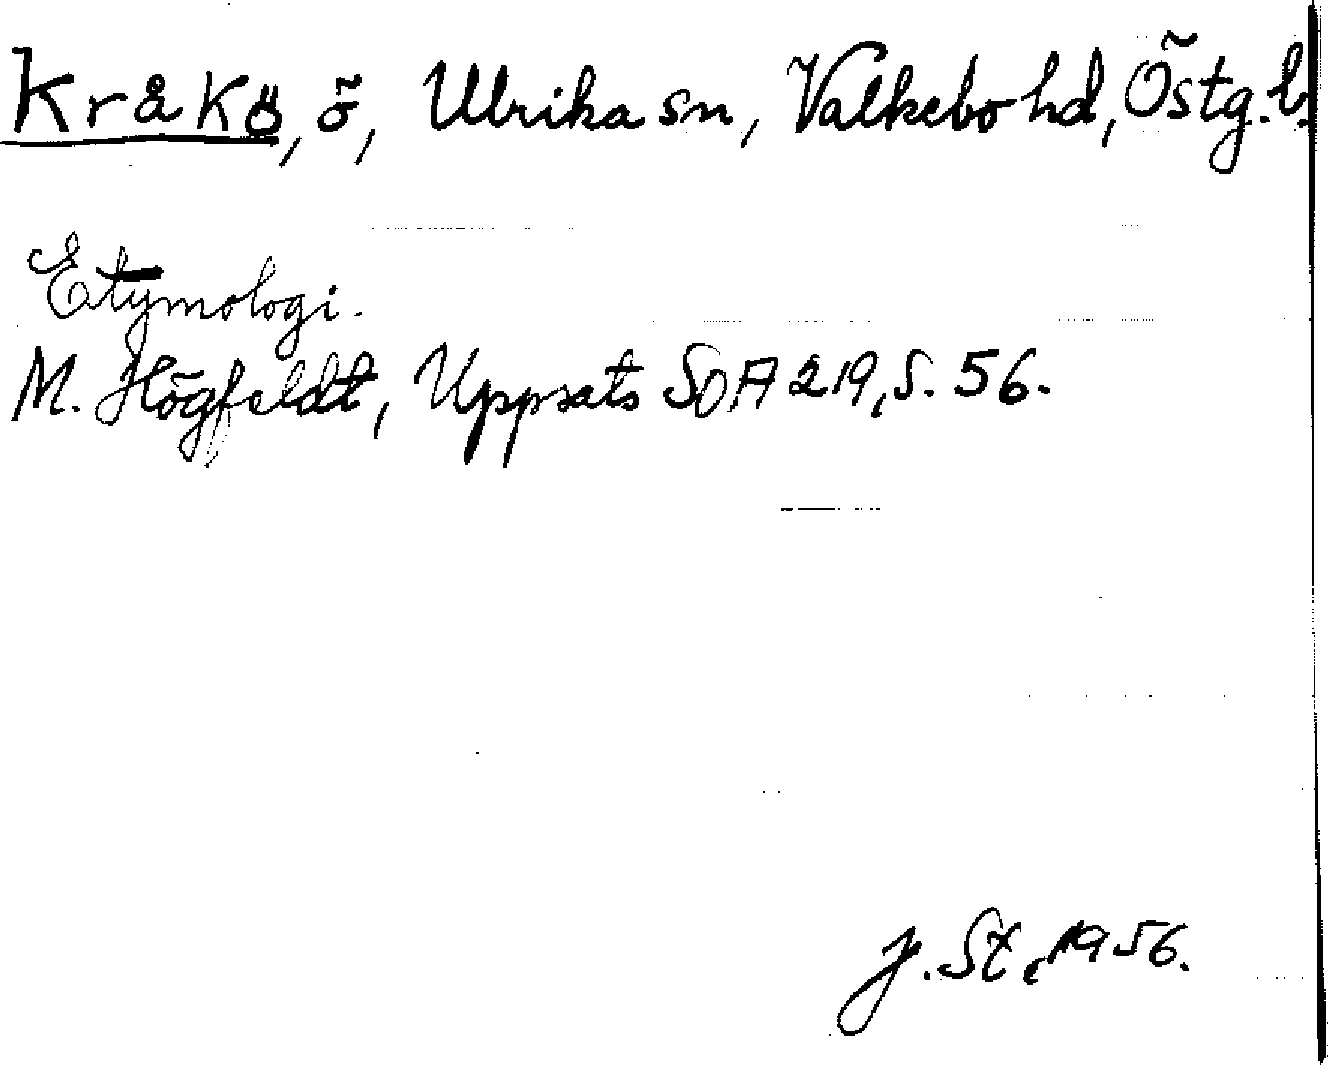 Kråkö, ö, Ulrika sn, Valkebo hd, Östg. l.
Etymologi.
M. Högfeldt, Uppsats SOA 219, s. 56.
J. St. 1956.